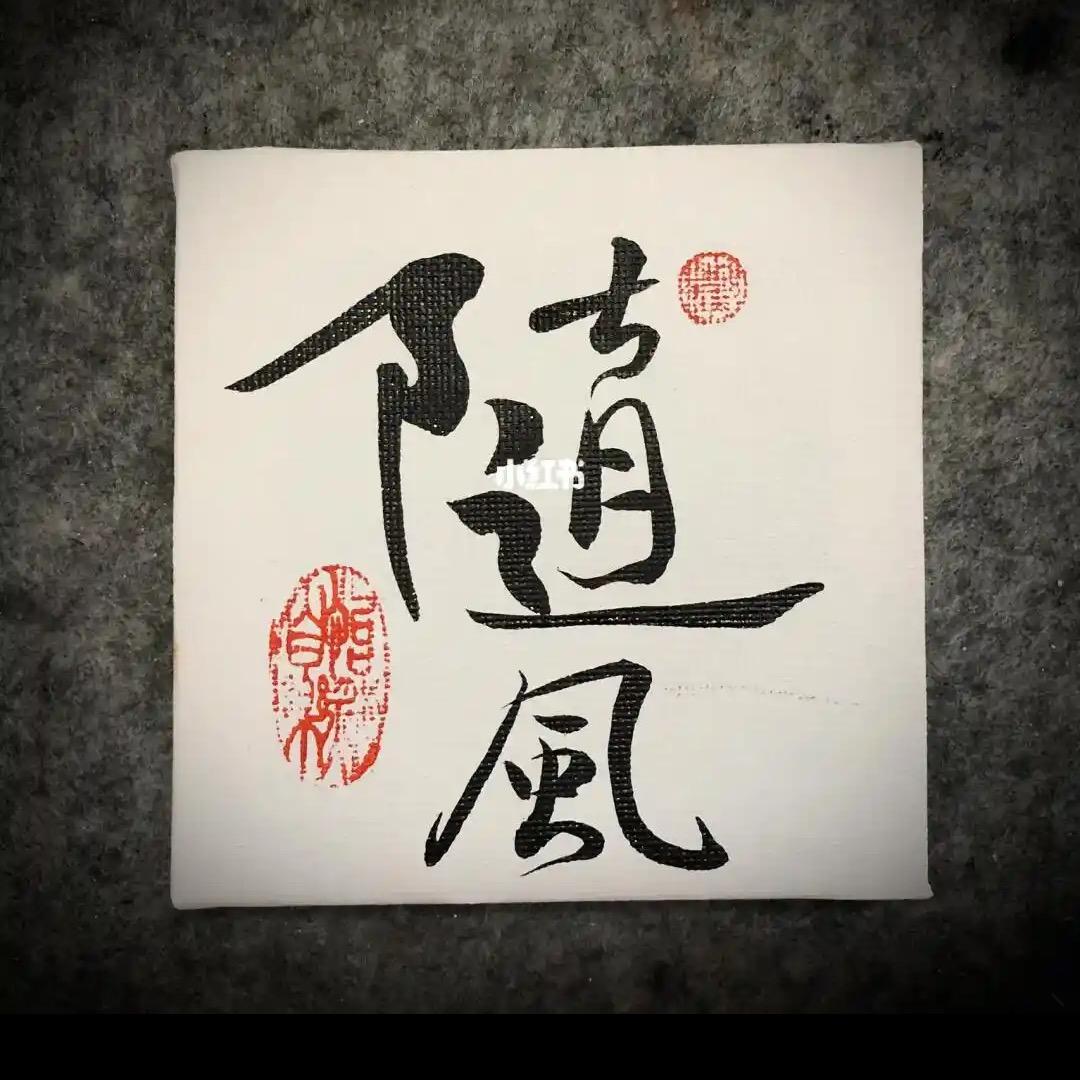 隨
風
小红书